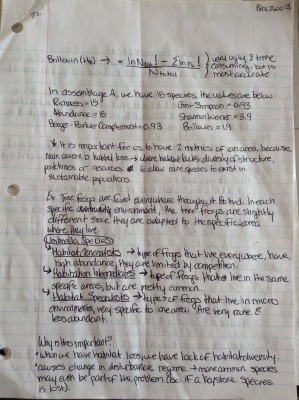 BIOL 3600
Brillouin (HB) → = ln N total! - Σ ln ni! / N total } very ugly & time consuming, but is most accurate
In assemblage A, we have 15 species, the values are below:
Richness = 15 Gini-Simpson = 0.93
Abundance = 15 Shannon Weiner = 3.9
Berger-Parker Complement = 0.93 Brillouin = 1.9
* It is important for us to have 2 metrics of an area because
main concern is habitat loss → where habitat lacks diversity of structure,
patchiness or resources to allow rare species to exist in
sustainable populations.
Ex. Tree frogs are found everywhere throughout
specific environment, the tree frogs are slightly
different since they are adapted to the specific area
where they live.
Umbrella Species
Habitat Generalists → type of frogs that live everywhere, have
high abundance, they are limited by competition.
Habitat → type of frogs that live in the same
specific areas, but are pretty common.
Habitat Specialists → types of frogs that live in micro
environments, very specific to one area. *Are very rare &
less abundant.
Why is this important?
• When we have habitat loss, we have lack of habitat diversity.
• causes change in disturbance regime → more common species
may even be part of the problem (bc. if a keystone species
is lost).